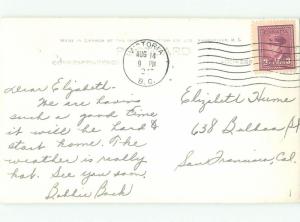 MADE IN CANADA BY
VICTORIA
AUG 14
9 PM
B.C.
CANADA
Dear Elizabeth.
We are having
such a good time
it will be hard to
start home. The
weather is really
hot. See you soon.
Bobbie Bock
Elizabeth Hume
638 Balboa St
San Francisco, Cal.